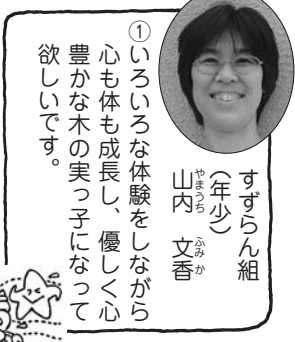 すずらん組
（年少）
山内　文香
やまうち　ふみか
①いろいろな体験をしながら
心も体も成長し、優しく心
豊かな木の実っ子になって
欲しいです。